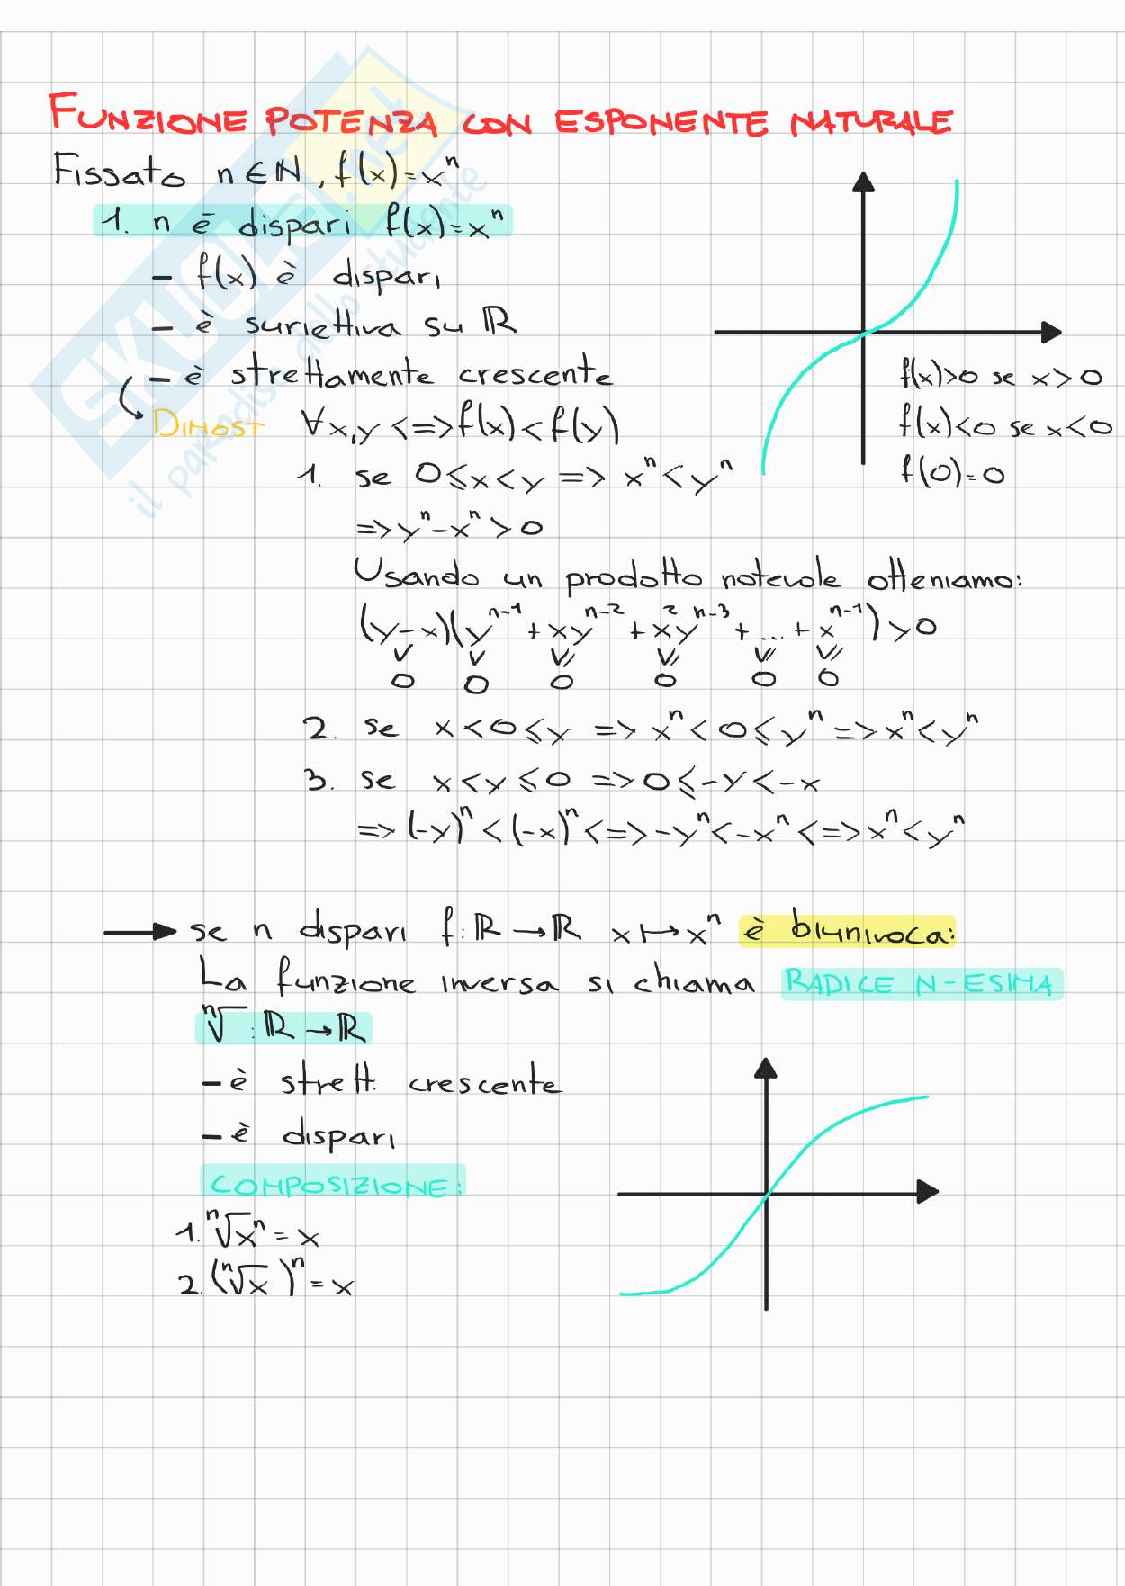 FUNZIONE POTENZA CON ESPONENTE NATURALE
Fissato n∈ℕ, f(x)=xⁿ
1. n è dispari f(x)=xⁿ
- f(x) è dispari
- è suriettiva su ℝ
- è strettamente crescente
f(x)>0 se x>0
DIMOST ∀x,y <=> f(x)<f(y)
f(x)<0 se x<0
1. se 0≤x<y => xⁿ<yⁿ
f(0)=0
=> yⁿ-xⁿ>0
Usando un prodotto notevole otteniamo:
(y-x)(yⁿ⁻¹+xyⁿ⁻²+x²yⁿ⁻³+...+xⁿ⁻¹)>0
0 0 0 0 0 0
2. se x<0≤y => xⁿ<0≤yⁿ => xⁿ<yⁿ
3. se x<y≤0 => 0≤-y<-x
=> (-y)ⁿ<(-x)ⁿ <=> -yⁿ<-xⁿ <=> xⁿ<yⁿ
→ se n dispari f:ℝ→ℝ x↦xⁿ è biunivoca:
La funzione inversa si chiama RADICE N-ESIMA
ⁿ√ : ℝ→ℝ
- è strett. crescente
- è dispari
COMPOSIZIONE:
1. ⁿ√xⁿ = x
2. (ⁿ√x)ⁿ = x
SKUOLA.net
il paradiso dello studente